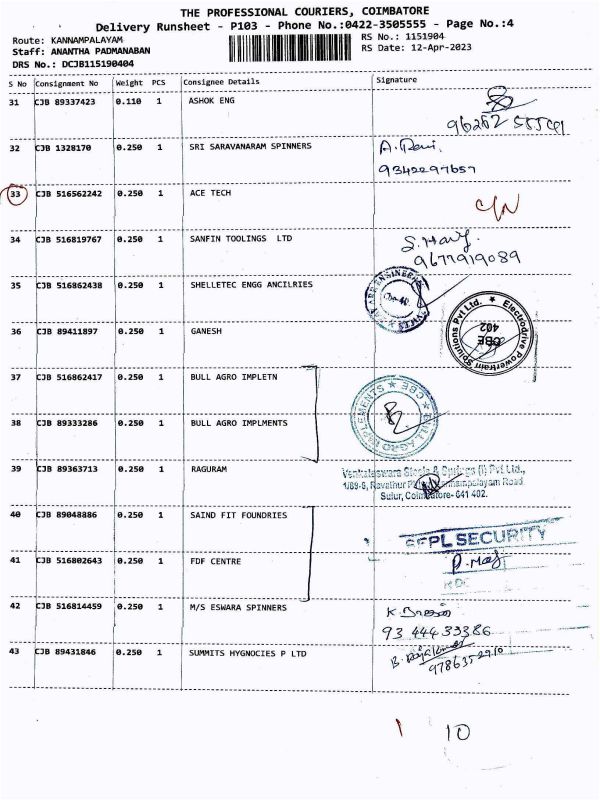 THE PROFESSIONAL COURIERS, COIMBATORE
Delivery Runsheet - P103 - Phone No.:0422-3505555 - Page No.:4
Route: KANNAMPALAYAM
RS No.: 1151904
Staff: ANANTHA PADMANABAN
RS Date: 12-Apr-2023
DRS No.: DCJB115190404
S No Consignment No Weight PCS Consignee Details Signature
31 CJB 89337423 0.110 1 ASHOK ENG
32 CJB 1328170 0.250 1 SRI SARAVANARAM SPINNERS A. Rani.
9342297657
33 CJB 516562242 0.250 1 ACE TECH C/N
34 CJB 516819767 0.250 1 SANFIN TOOLINGS LTD
9677919089
35 CJB 516862438 0.250 1 SHELLETEC ENGG ANCILRIES
36 CJB 89411897 0.250 1 GANESH
Electrodrive Powertrain Solutions Pvt Ltd.
CBE
402
37 CJB 516862417 0.250 1 BULL AGRO IMPLETN
38 CJB 89333286 0.250 1 BULL AGRO IMPLMENTS
BULL AGRO IMPLEMENTS CBE
39 CJB 89363713 0.250 1 RAGURAM
Venkateswara Steels & Springs (I) Pvt Ltd.,
Sulur, Coimbatore- 641 402.
40 CJB 89048886 0.250 1 SAIND FIT FOUNDRIES
SECURITY
41 CJB 516802643 0.250 1 FDF CENTRE
42 CJB 516814459 0.250 1 M/S ESWARA SPINNERS
93 444 33386
43 CJB 89431846 0.250 1 SUMMITS HYGNOCIES P LTD
B. Rajakumar
9786352910
10